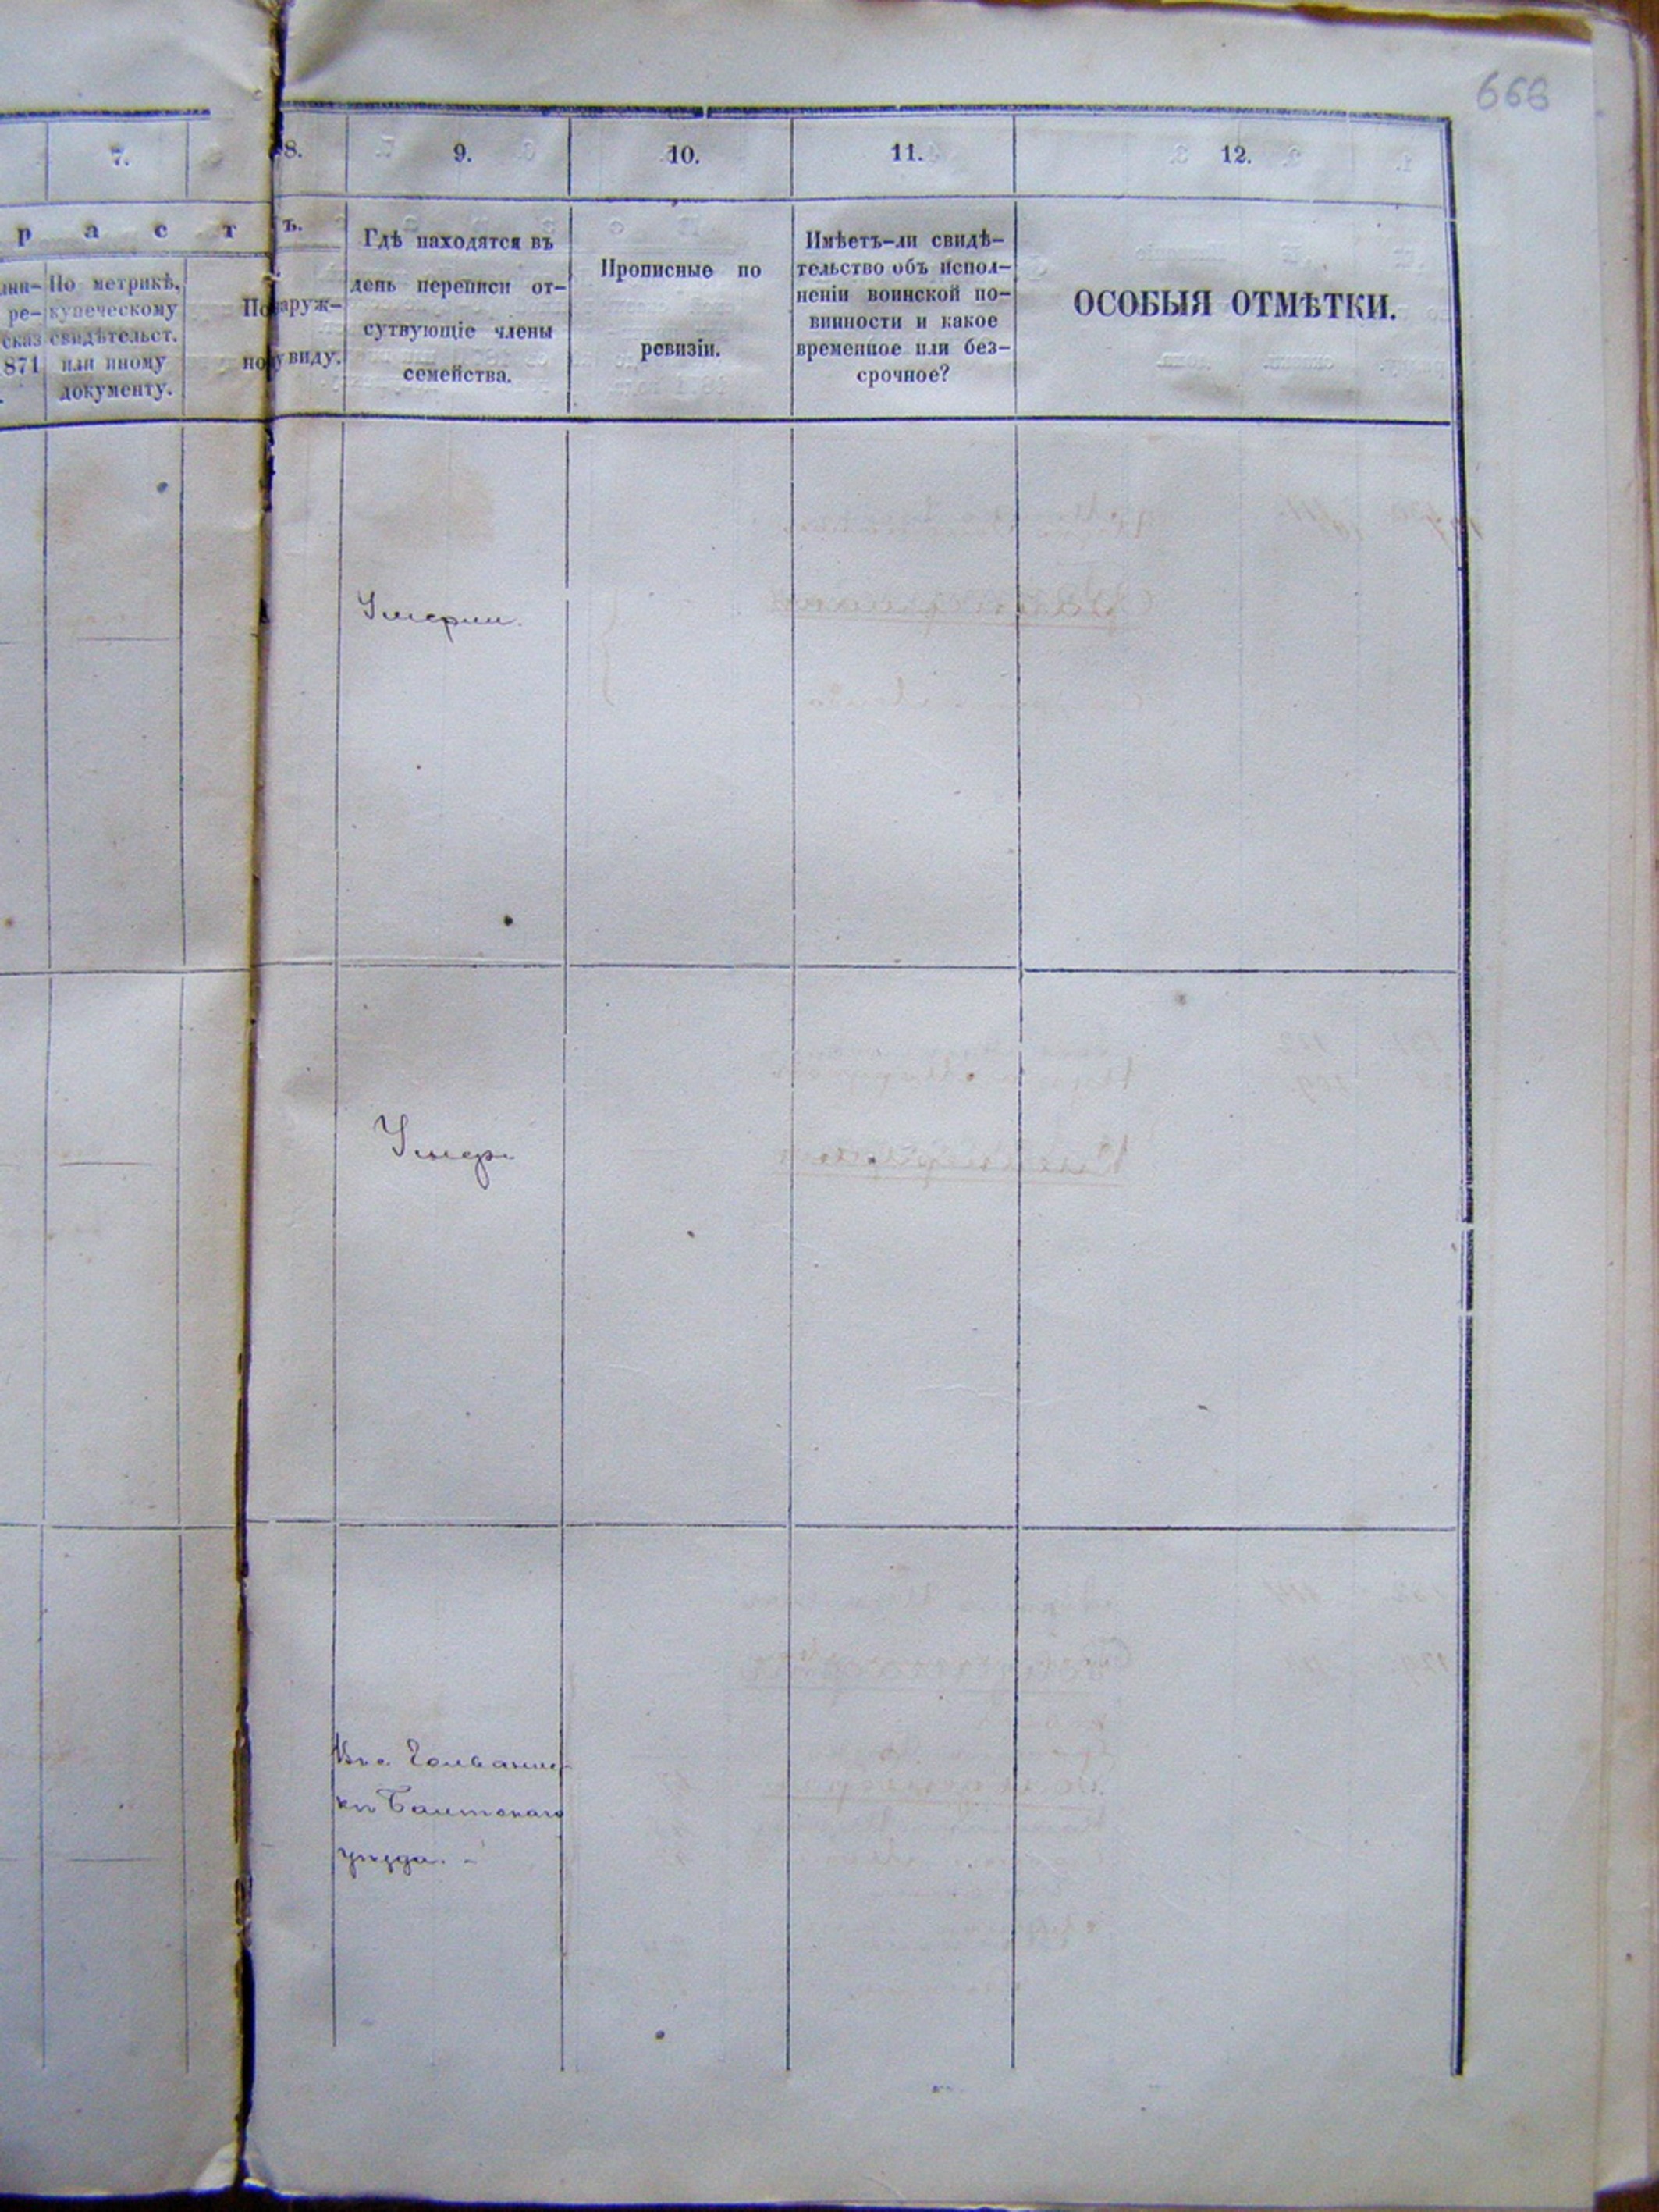 666
7.
8.
9.
10.
11.
12.
р а с т ъ.
По метрикѣ,
купеческому
свидѣтельст.
или иному
документу.
ре-
сказ
871
По наруж-
ному виду.
Гдѣ находятся въ
день переписи от-
сутвующіе члены
семейства.
Прописные по
ревизіи.
Имѣетъ-ли свидѣ-
тельство объ испол-
неніи воинской по-
винности и какое
временное или без-
срочное?
ОСОБЫЯ ОТМѢТКИ.
Умерли.
Умеръ
Балтскаго
уѣзда. -